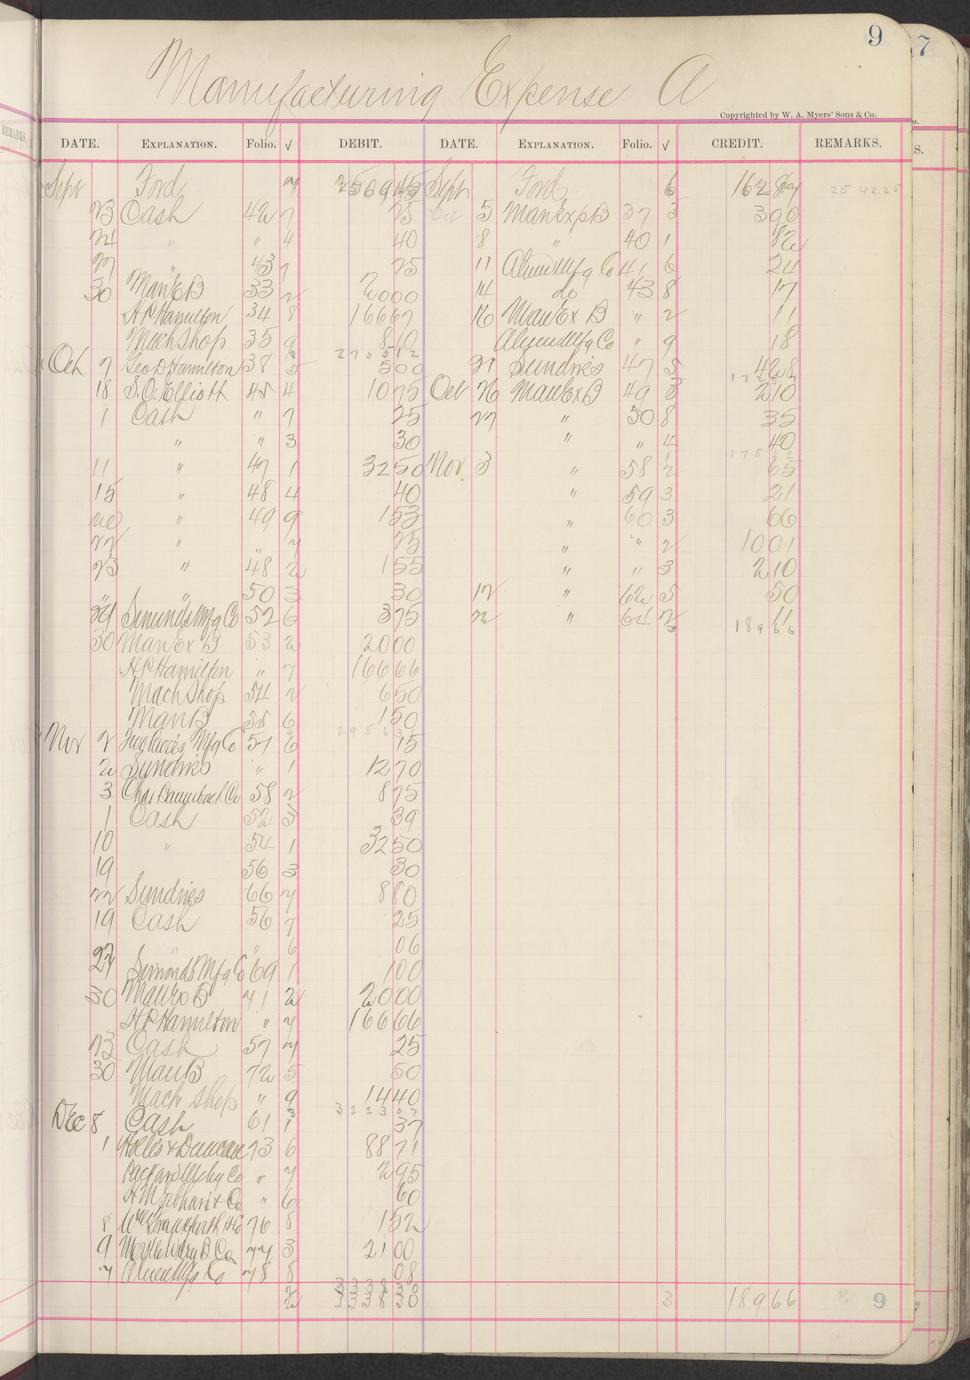 9
7
Manufacturing Expense A
Copyrighted by W. A. Myers' Sons & Co.
DATE. EXPLANATION. Folio. √ DEBIT. DATE. EXPLANATION. Folio. √ CREDIT. REMARKS.
Sept Ford 7 256945 Sept Ford 6 162
23 Cash 42 7 25 5 Man Exp B 37 3 390
24 " " 4 40 8 " 40 1 82
27 " 43 7 25 11 Alum Mfg Co 41 6 24
30 Man E B 33 2 2000 14 do 43 8 17
H P Hamilton 34 8 16667 16 Man Ex B " 2 11
Mach Shop 35 9 810 Alum Mfg Co " 9 18
270512
Oct 7 Geo D Hamilton 38 5 500 27 Sundries 47 5 428
18 S. O. Elliott 45 4 1075 Oct 26 Man Ex B 49 3 210
1 Cash " 7 25 27 " 50 8 35
" " 3 30 " " 4 40
11 " 47 1 3250 Nov 3 " 58 2 65
15 " 48 4 40 " 59 3 21
20 " 49 9 153 " 60 3 66
22 " " 7 25 " " 2 1001
23 " 48 2 155 " " 3 210
" 50 3 30 12 " 62 5 50
24 Simonds Mfg Co 52 6 375 22 " 64 2 11
18966
30 Man Ex B 53 2 2000
H P Hamilton " 7 16666
Mach Shop 54 2 650
Man B 55 6 150
Nov 2 Mfg Co 57 6 15
2 Sundries " 1 1270
3 Chas Co 58 2 875
1 Cash 52 5 39
10 " 54 1 3250
19 56 3 30
22 Sundries 66 7 880
19 Cash 56 7 25
" " 6 06
27 Simonds Mfg Co 69 1 100
30 Man Ex B 71 2 2000
H P Hamilton " 7 16666
23 Cash 57 7 25
30 Man B 72 5 50
Mach Shop " 9 1440
322307
Dec 8 Cash 61 1 37
1 & Duncan 73 6 8871
Packard Co " 7 295
H & Co " 6 60
8 76 8 152
9 Co 77 3 2100
7 Alum Mfg Co 78 8 08
333830
2 333830 3 18966 9